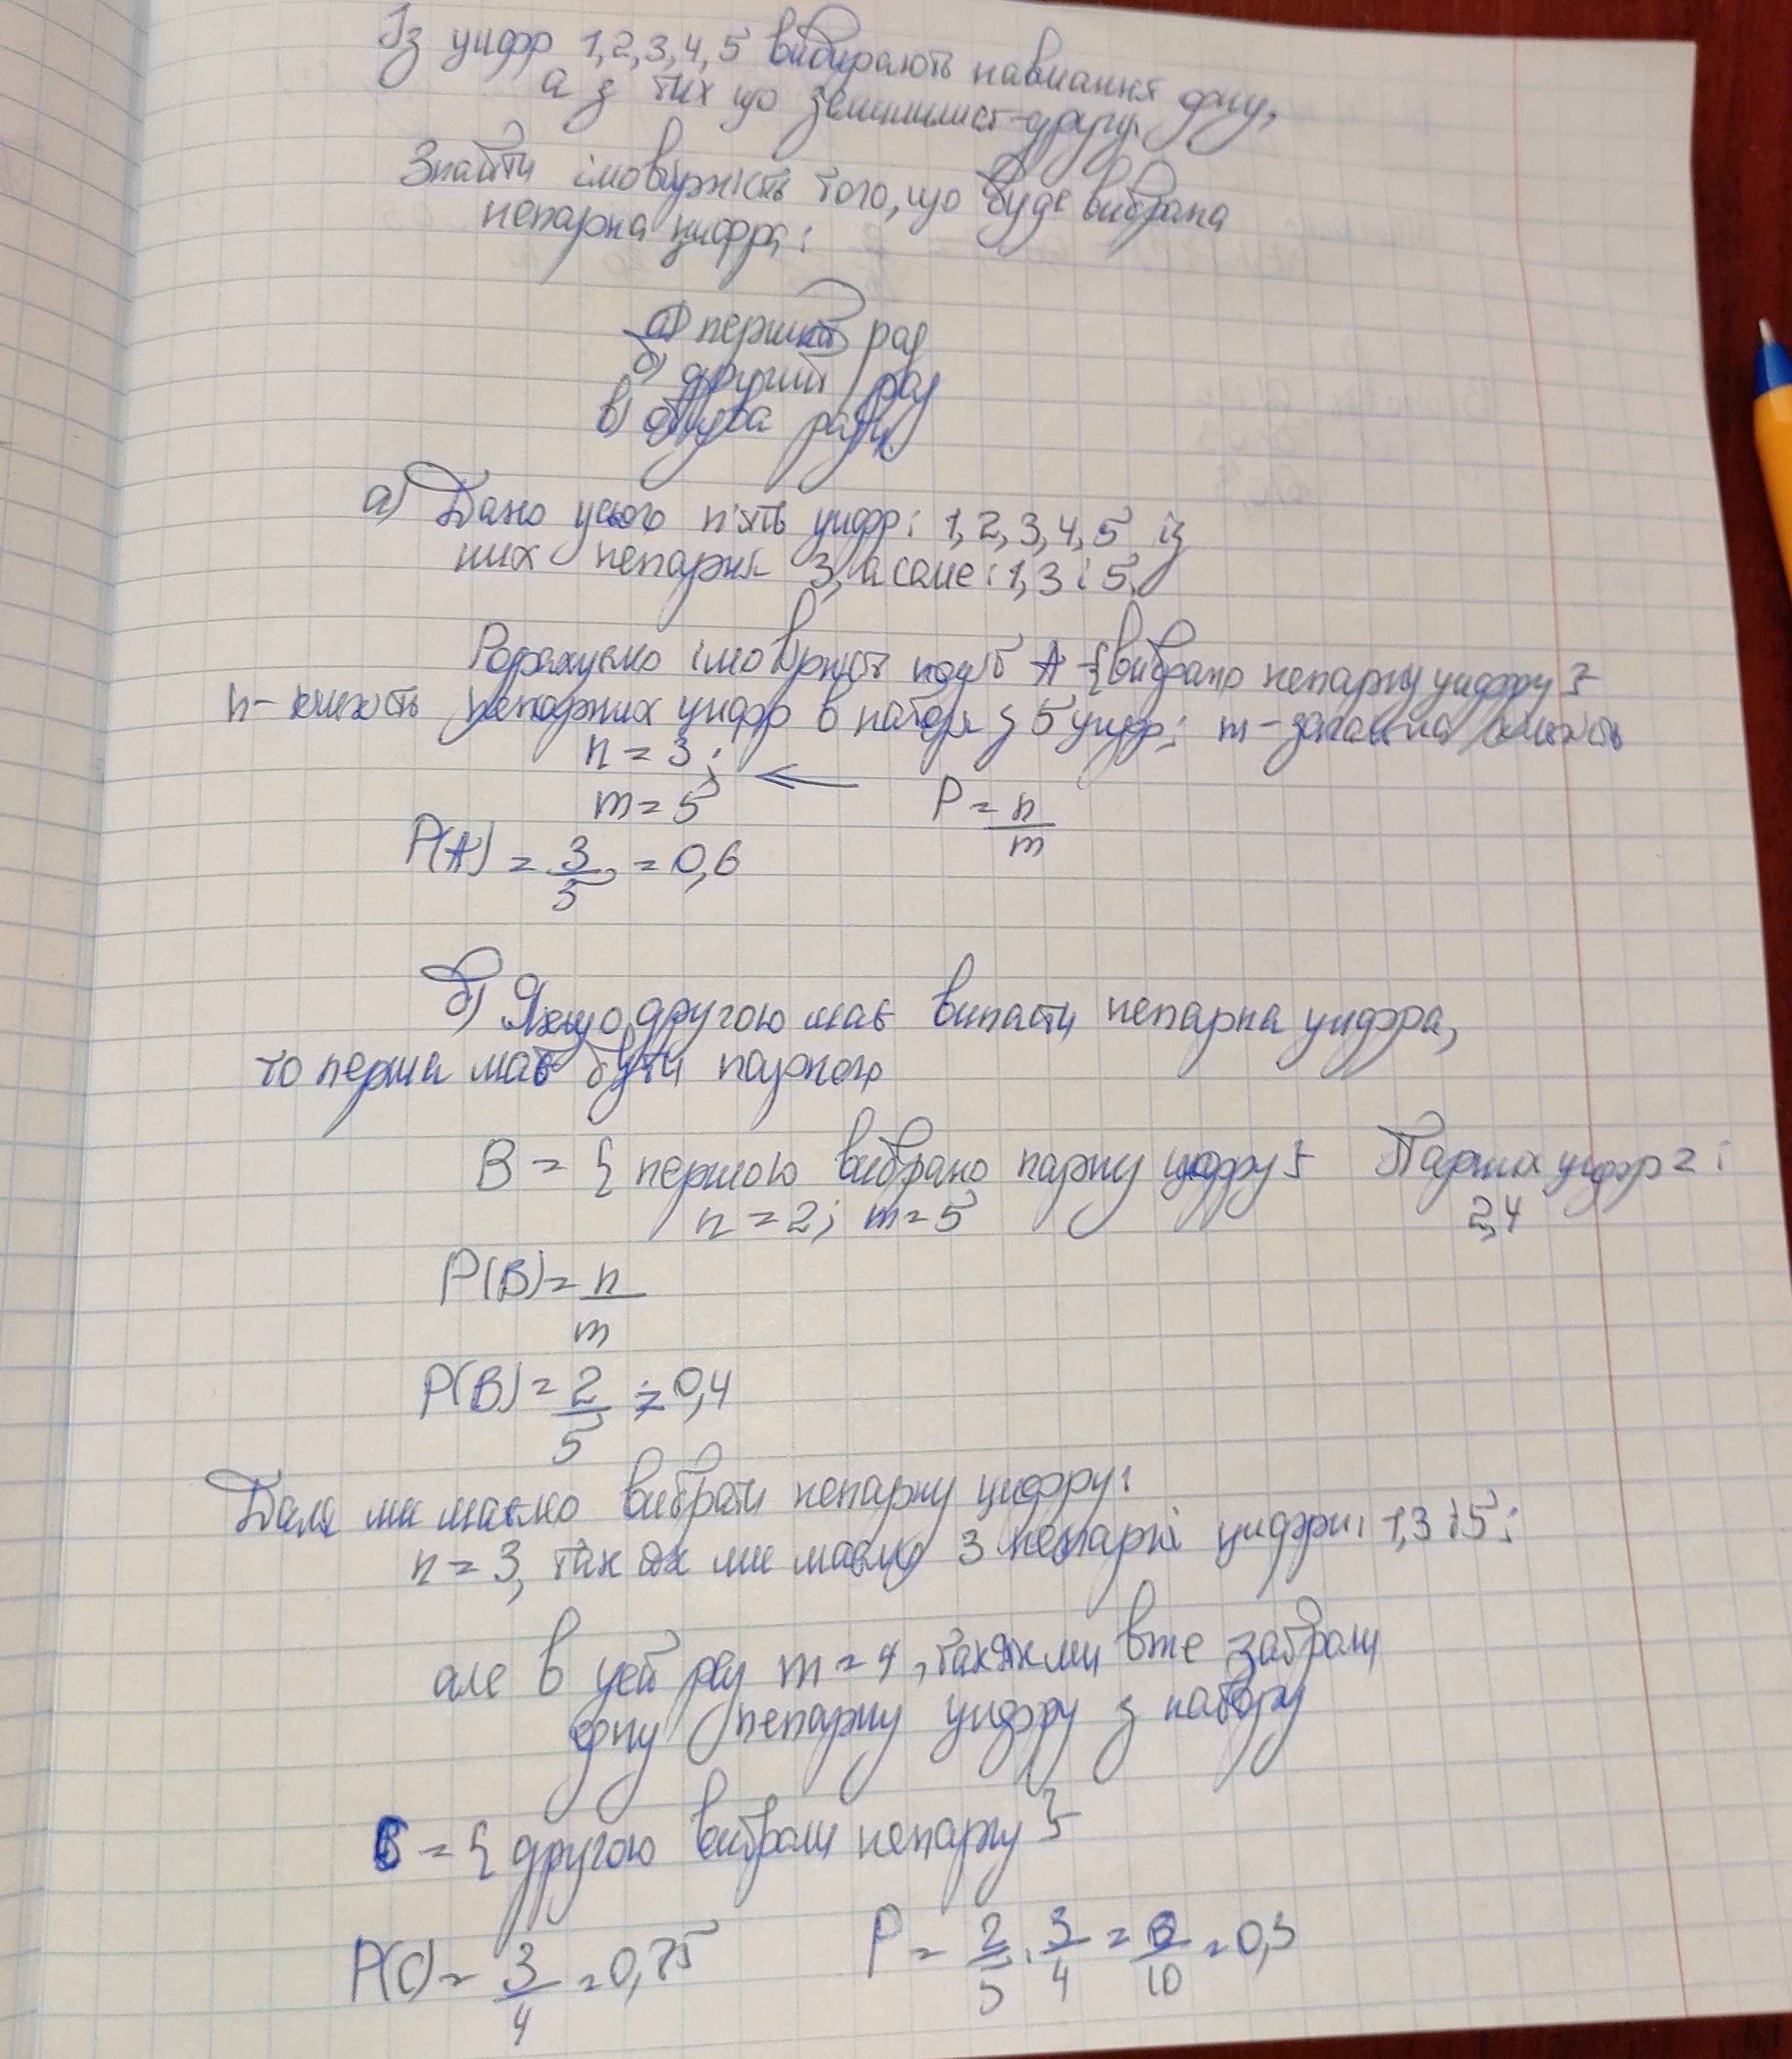 Із цифр 1,2,3,4,5 вибирають навмання одну,
а з тих що зелишилист-другу.
Знайти імовірність того, що буде вибрана
непарна цифра:
а) перший раз
б) другий раз
в) обидва рази.
а) Дано усього п'ять цифр: 1,2,3,4,5 із
них непарні 3, а саме: 1,3 і 5.
імовірність події А-{вибрано непарну цифру}
n- кількість непарних цифр в наборі з 5 цифр; m-загальна кількість
n = 3;
m = 5
P = n/m
P(A) = 3/5 = 0,6
б) Якщо другою має випасти непарна цифра,
то перша має бути парною
B = { першою вибрано парну цифру} Парних цифр 2:
n = 2; m = 5
2,4
P(B) = n/m
P(B) = 2/5 = 0,4
Далі ми маємо вибрати непарну цифру:
n = 3, так як ми маємо 3 непарні цифри: 1,3 і 5;
але в цей раз m = 4, так як ми вже забрали
одну непарну цифру з набору
= { другою вибрали непарну }
P(C) = 3/4 = 0,75
P = 2/5 · 3/4 = /10 = 0,3